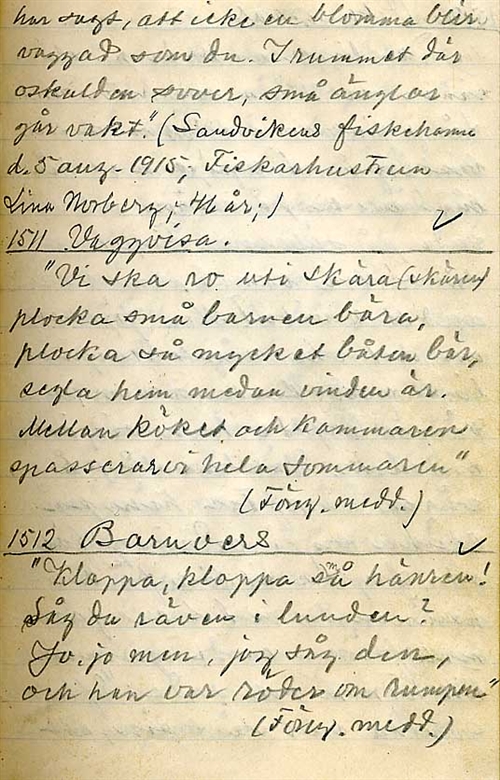 har sagt, att icke en blomma blir
vaggad som du. I rummet där
oskulden sover, små änglar
går vakt." (Sandvikens fiskehamn
d. 5 aug. 1915; Fiskarhustrun
Lina Norberg; 46 år;)
1511 Vaggvisa.
"Vi ska ro uti skära (skären)
plocka små barnen bära,
plocka så mycket båten bär,
segla hem medan vinden är.
Mellan köket och kammaren
spasserar vi hela sommaren"
(Föreg. medd.)
1512 Barnvers
"Kloppa, kloppa små händren!
Såg du räven i lunden?
Jo, jo men, jag såg den,
och han var röder om rumpen"
(Föreg. medd.)